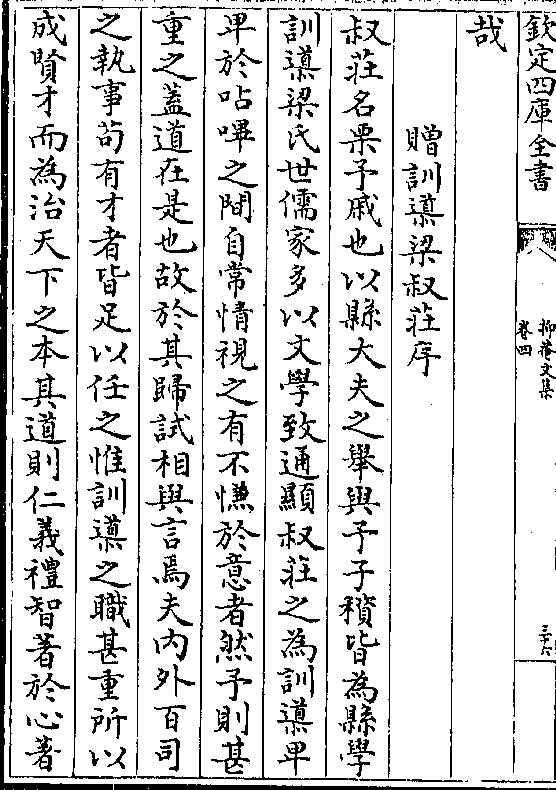 欽定四庫全書
抑菴文集
卷四
三十六
哉
贈訓𨗳梁叔莊序
叔莊名栗予戚也以縣大夫之舉與予子稹皆為縣學
訓𨗳梁氏世儒家多以文學致通顯叔莊之為訓𨗳早
畢於呫嗶之間自常情視之有不慊於意者然予則甚
重之蓋道在是也故於其歸試相與言焉夫内外百司
之執事苟有才者皆足以任之惟訓𨗳之職甚重所以
成賢才而為治天下之本其道則仁義禮智著於心著